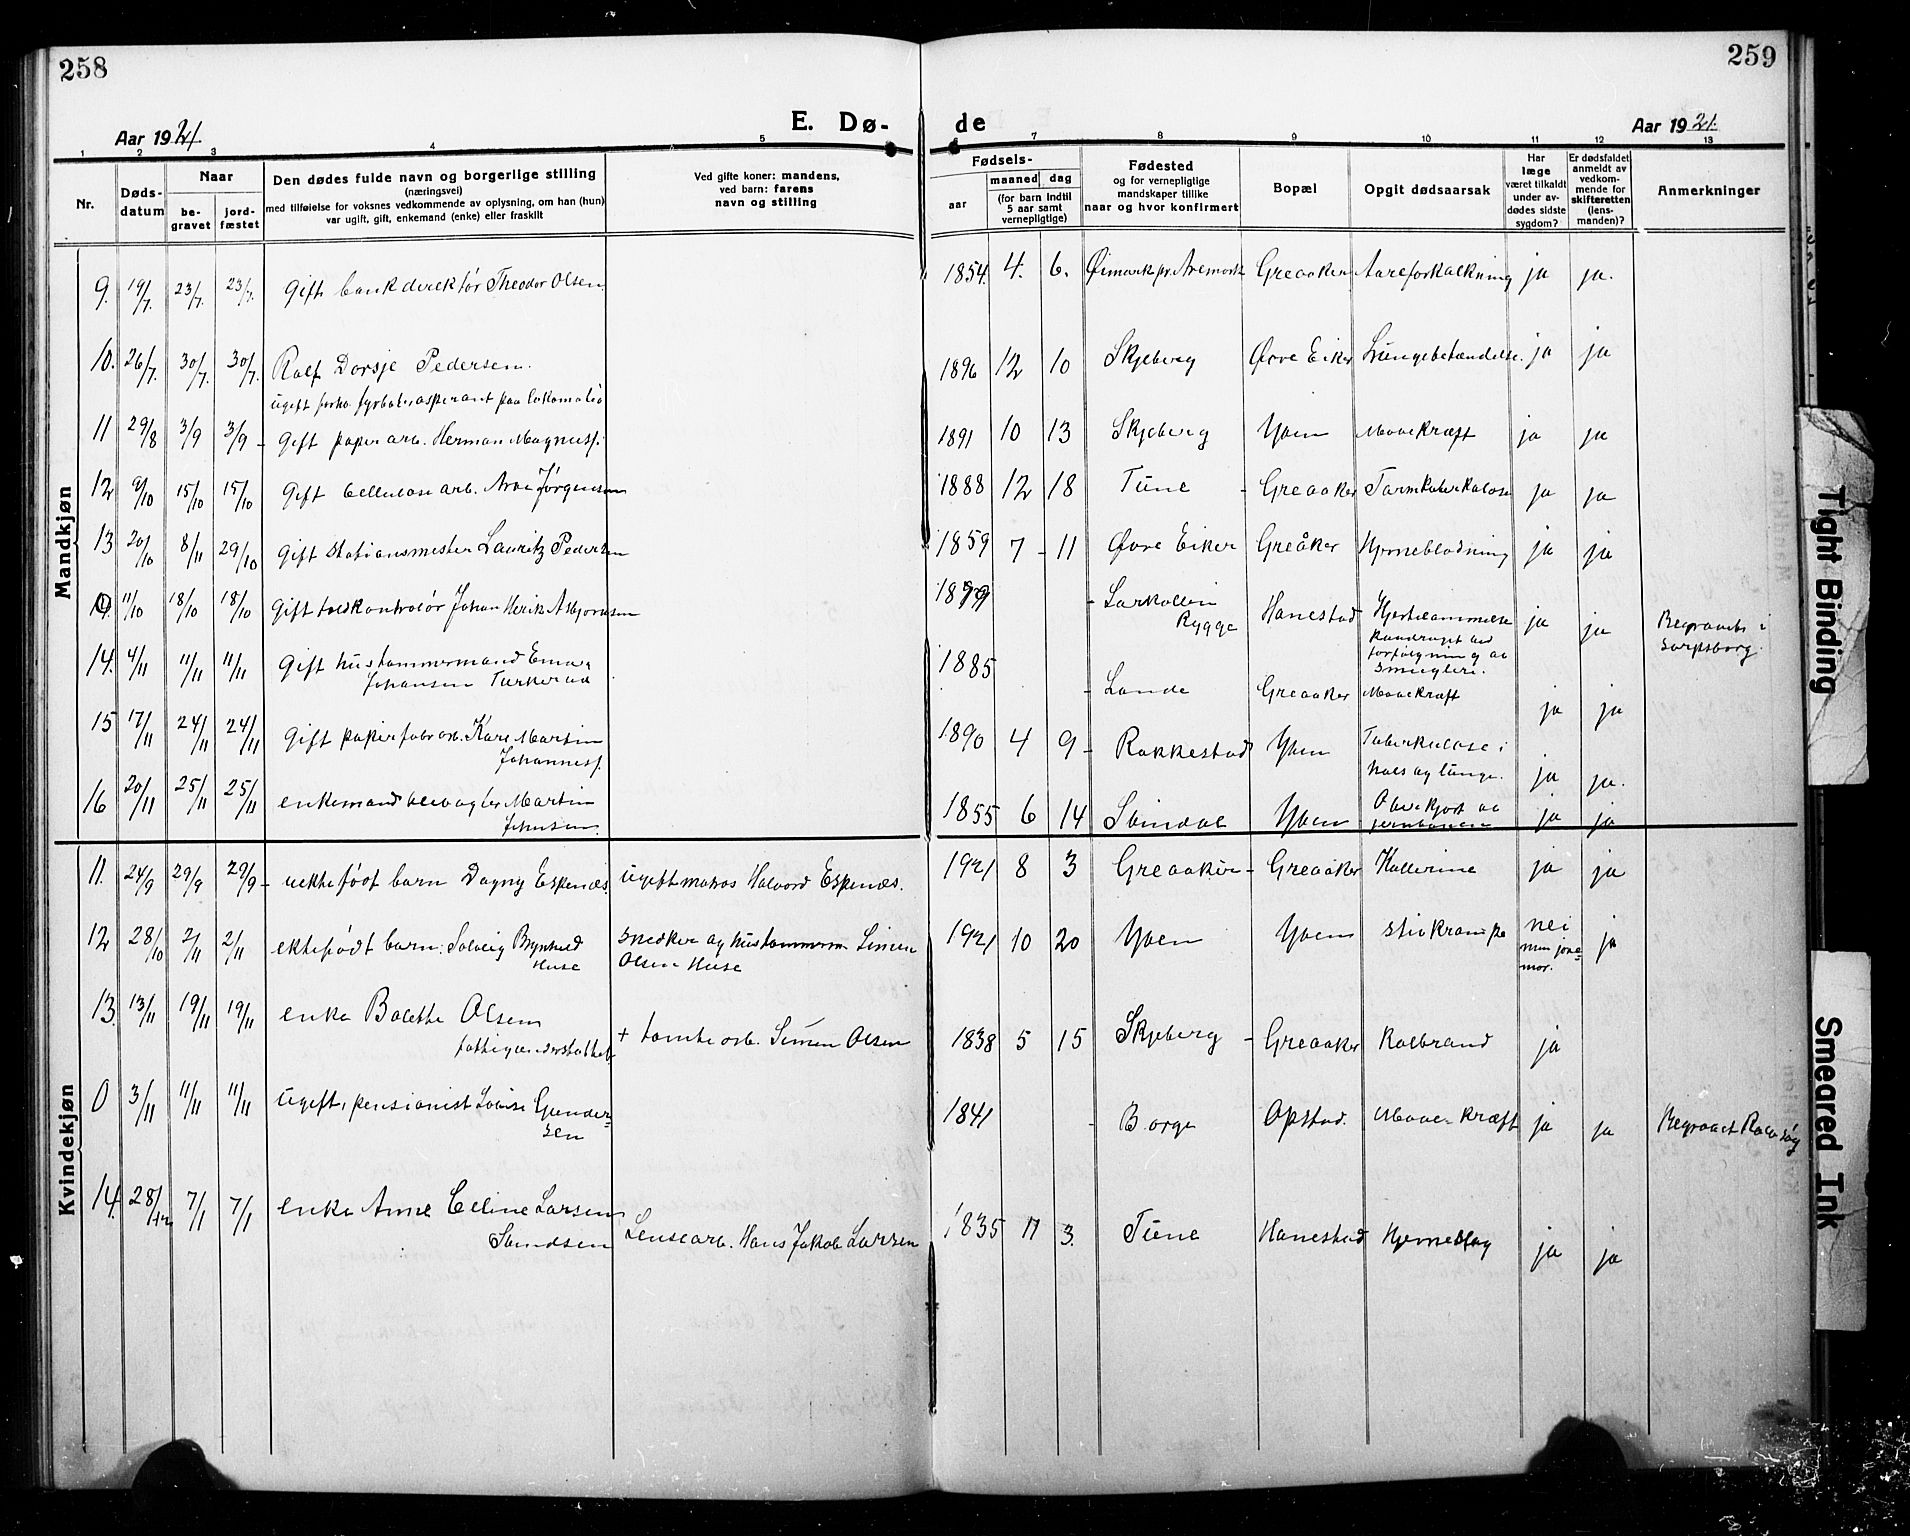 258
259
E. Dø-
de
Aar 1921.
Aar 1921.
1 2 3 4 5 6 7 8 9 10 11 12 13
Nr.
Døds-
datum
Naar
be-
gravet
jord-
fæstet
Den dødes fulde navn og borgerlige stilling
(næringsvei)
med tilføielse for voksnes vedkommende av oplysning, om han (hun)
var ugift, gift, enkemand (enke) eller fraskilt
Ved gifte koner: mandens,
ved barn: farens
navn og stilling
Fødsels-
aar
maaned
dag
(for barn indtil
5 aar samt
vernepligtige)
Fødested
og for vernepligtige
mandskaper tillike
naar og hvor konfirmert
Bopæl
Opgit dødsaarsak
Har
læge
været tilkaldt
under av-
dødes sidste
sygdom?
Er dødsfaldet
anmeldt av
vedkom-
mende for
skifteretten
(lens-
manden)?
Anmerkninger
Mandkjøn
9. 19/7. 23/7. 23/7. Gift bankdirektør Theodor Olsen. 1854. 4. 6. Øimark pr. Aremark Greaaker Aareforkalkning ja ja.
10. 26/7. 30/7. 30/7. Rolf Dorsje Pedersen. 1896 12 10 Skjeberg Øvre Eiker Lungebetændelse. ja ja
ugift fyrbøteraspirant paa lokomotiv
11 29/8 3/9 3/9 - Gift papirarb. Herman Magnusf. 1891 10 13 Skjeberg Yven Mavekræft ja ja
12 9/10 15/10 15/10 Gift Cellulosearb. Jørgensen 1888 12 18 Tune - Greaaker Tarmtuberkulose ja ja
13 20/10 8/11 29/10 Gift Stationsmester Lauritz Pedersen 1859 7 - 11 Øvre Eiker Greåker Hjerneblødning ja ja
0. 11/10 18/10 18/10 Gift toldkontrolør Johan Henrik Asbjørnsen - Larkollen Hanestad Hjertelammelse ja ja Begravet i
Rygge
forfølgning av
smuglere.
Sarpsborg.
14. 4/11 11/11 11/11 Gift hustømmermand Einar 1885 - Lande Greaaker Mavekræft ja ja
Johansen
15 17/11 24/11 24/11 Gift papirfabr.arb. Karl Martin 1890 4 9 - Rakkestad Yven Tuberkulose i ja ja.
Johannesf.
hals og lunge.
16 20/11 25/11 25/11 enkemand Martin 1855 6 14 Svindal Yven Overkjørt av ja ja
Johnsen.
jernbanen
Kvindekjøn
11. 24/9 29/9 29/9 - uekte født barn Dagny Espenæs. ugift matros Halvord Espenæs. 1921 8 3 Greaaker - Greaaker Kollerine ja ja
12 28/10 2/11 2/11 ektefødt barn: Solveig Brynhild snedker og hustømmerm. Simen 1921 10 20 Yven Yven stivkrampe nei ja
Huse
Olsen Huse
men jorde-
mor.
13. 13/11 19/11 19/11 enke Bolette Olsen + tomtearb. Simen Olsen 1838 5 15 Skjeberg - Greaaker Kolbrand ja
fattigunderstøttet
0 3/11 11/11 11/11 ugift, pensionist Lovise Gunder- 1841 - Borge Opstad. Mave-kræft ja ja Begravet Rolvsøy
sen
14. 28/12 7/1 7/1 enke Anne Celine Larsen Lensearb. Hans Jakob Larsen 1835 11 3. Tune Hanestad Hjerneslag ja ja
Sandsen
Tight Binding
Smeared Ink